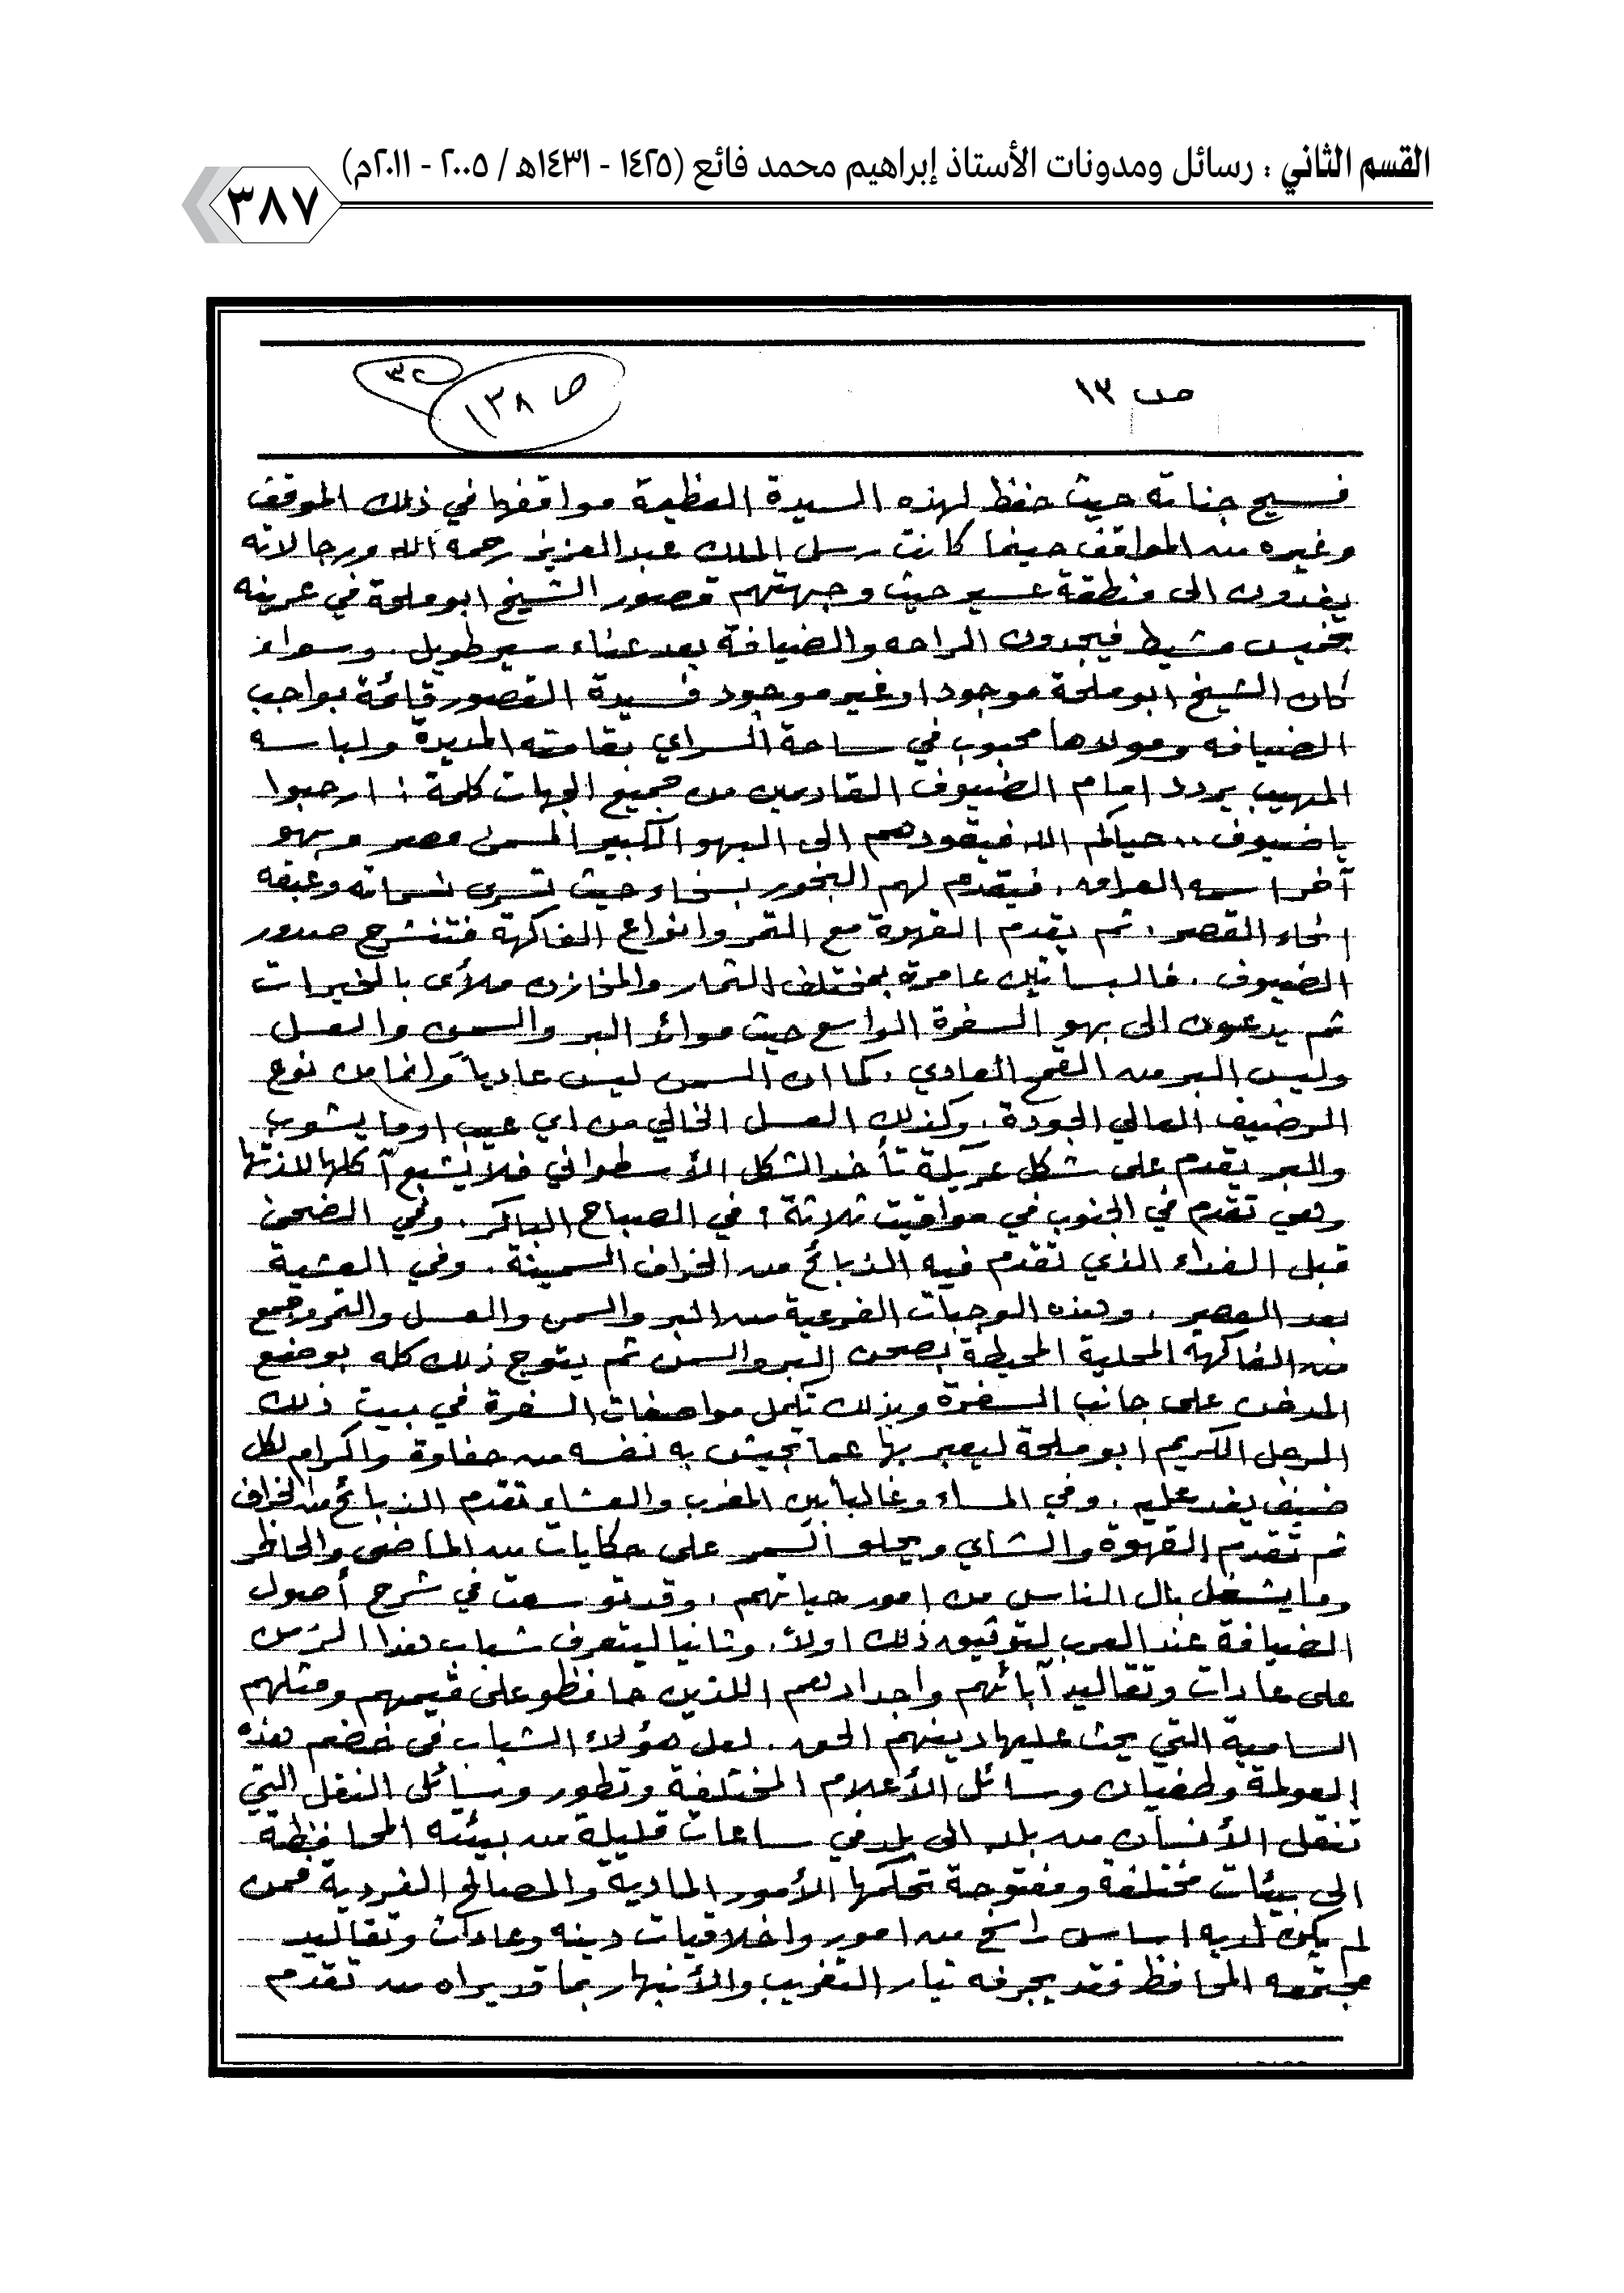 القسم الثاني : رسائل ومدونات الأستاذ إبراهيم محمد فائع (١٤٢٥ - ١٤٣١هـ / ٢٠٠٥ - ٢٠١١م)
٣٨٧
ص ١٣
ص ١٣٨
فسيح جناته حيث حفظ لهذه السيدة العظيمة مواقفها في ذلك الموقف
وغيره من المواقف حينما كانت رسل الملك عبدالعزيز رحمه الله ورجالاته
يفدون الى منطقة عسير حيث وجهتهم قصور الشيخ ابوملحة في عرينه
بخميس مشيط فيجدون الراحه والضيافة بعد عناء سير طويل. وسواء
كان الشيخ ابوملحة موجودا اوغير موجود فسيدة القصور قائمة بواجب
الضيافه ومولاها محبوب في ساحة السراي بقامته المديدة ولباسه
المهيب يردد امام الضيوف القادمين من جميع الجهات كلمة : ارحبوا
ياضيوف .. حياكم الله فيقودهم الى البهو الكبير المسمى مصر وبهو
آخر اسمه العراق. فيقدم لهم البخور بسخاء حيث تسري نسماته وعبقه
انحاء القصر. ثم يقدم القهوة مع التمر وانواع الفاكهة فتنشرح صدور
الضيوف. فالبساتين عامرة بمختلف الثمار والمخازن ملأى بالخيرات
ثم يدعون الى بهو السفرة الواسع حيث موائد البر والسمن والعسل
وليس البر من القمح العادي. كما ان السمن ليس عادياً وانما من نوع
الرضيف العالي الجودة. وكذلك العسل الخالي من اي عيب اوما يشوب
والبر يقدم على شكل عريكة تأخذ الشكل الأسطواني فلا يشبع آكلها للذتها
وهي تقدم في الجنوب في مواقيت ثلاثة : في الصباح الباكر. وفي الضحى
قبل الغداء الذي تقدم فيه الذبائح من الخراف السمينة. وفي العشية
بعد العصر. وهذه الوجبات الفرعية من البر والسمن والعسل والتمر وجمع
من الفاكهة المحلية المحيطة بصحن البر والسمن ثم يتوج ذلك كله بوضع
المرضف على جانب السفرة وبذلك تكمل مواصفات السفرة في بيت ذلك
الرجل الكريم ابوملحة ليعبر بها عما تجيش به نفسه من حفاوة واكرام لكل
ضيف يفد عليه. وفي المساء وغالباً بين المغرب والعشاء تقدم الذبائح من الخراف
ثم تقدم القهوة والشاي ويحلو السمر على حكايات من الماضي والحاظر
وما يشغل بال الناس من امور حياتهم. وقد توسعت في شرح أصول
الضيافة عند العرب لتوثيق ذلك اولاً. وثانيا ليتعرف شباب هذا الزمن
على عادات وتقاليد آبائهم واجدادهم اللذين حافظو على قيمهم ومثلهم
السامية التي يحث عليها دينهم الحق. لعل هؤلاء الشباب في خضم هذه
العولمة وطغيان وسائل الأعلام المختلفة وتطور وسائل النقل التي
تنقل الأنسان من بلد الى بلد في ساعات قليلة من بيئته المحافظة
الى بيئات مختلفة ومفتوحة تحكمها الأمور المادية والمصالح الفردية فمن
لم يكن لديه اساس راسخ من امور واخلاقيات دينه وعادات وتقاليد
مجتمعه المحافظ فقد يجرفه تيار التغريب والأنبهار بما قد يراه من تقدم